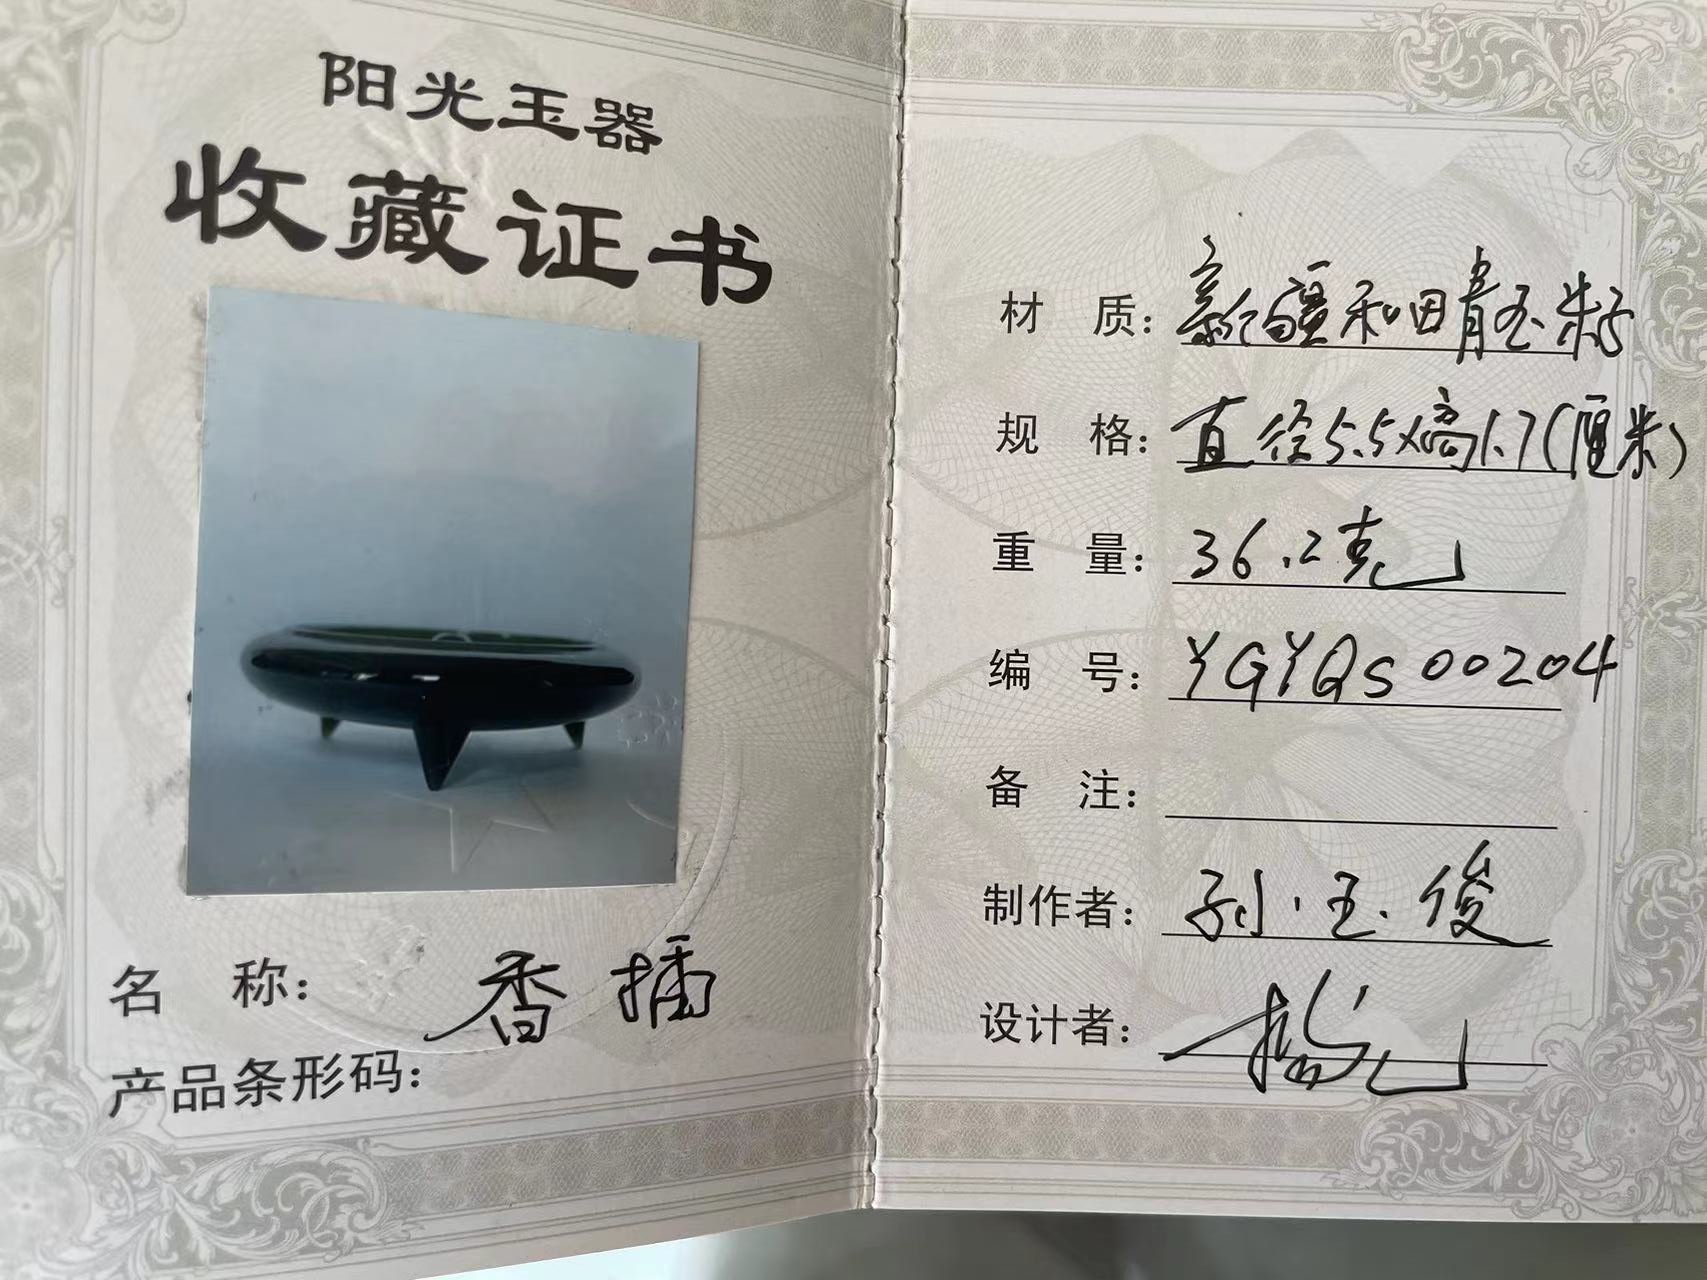 阳光玉器
收藏证书
名 称：香插
产品条形码：
材 质：新疆和田青玉籽
规 格：直径5.5x高1.7(厘米)
重 量：36.2克
编 号：YGYQS00204
备 注：
制作者：孙·玉·俊
设计者：